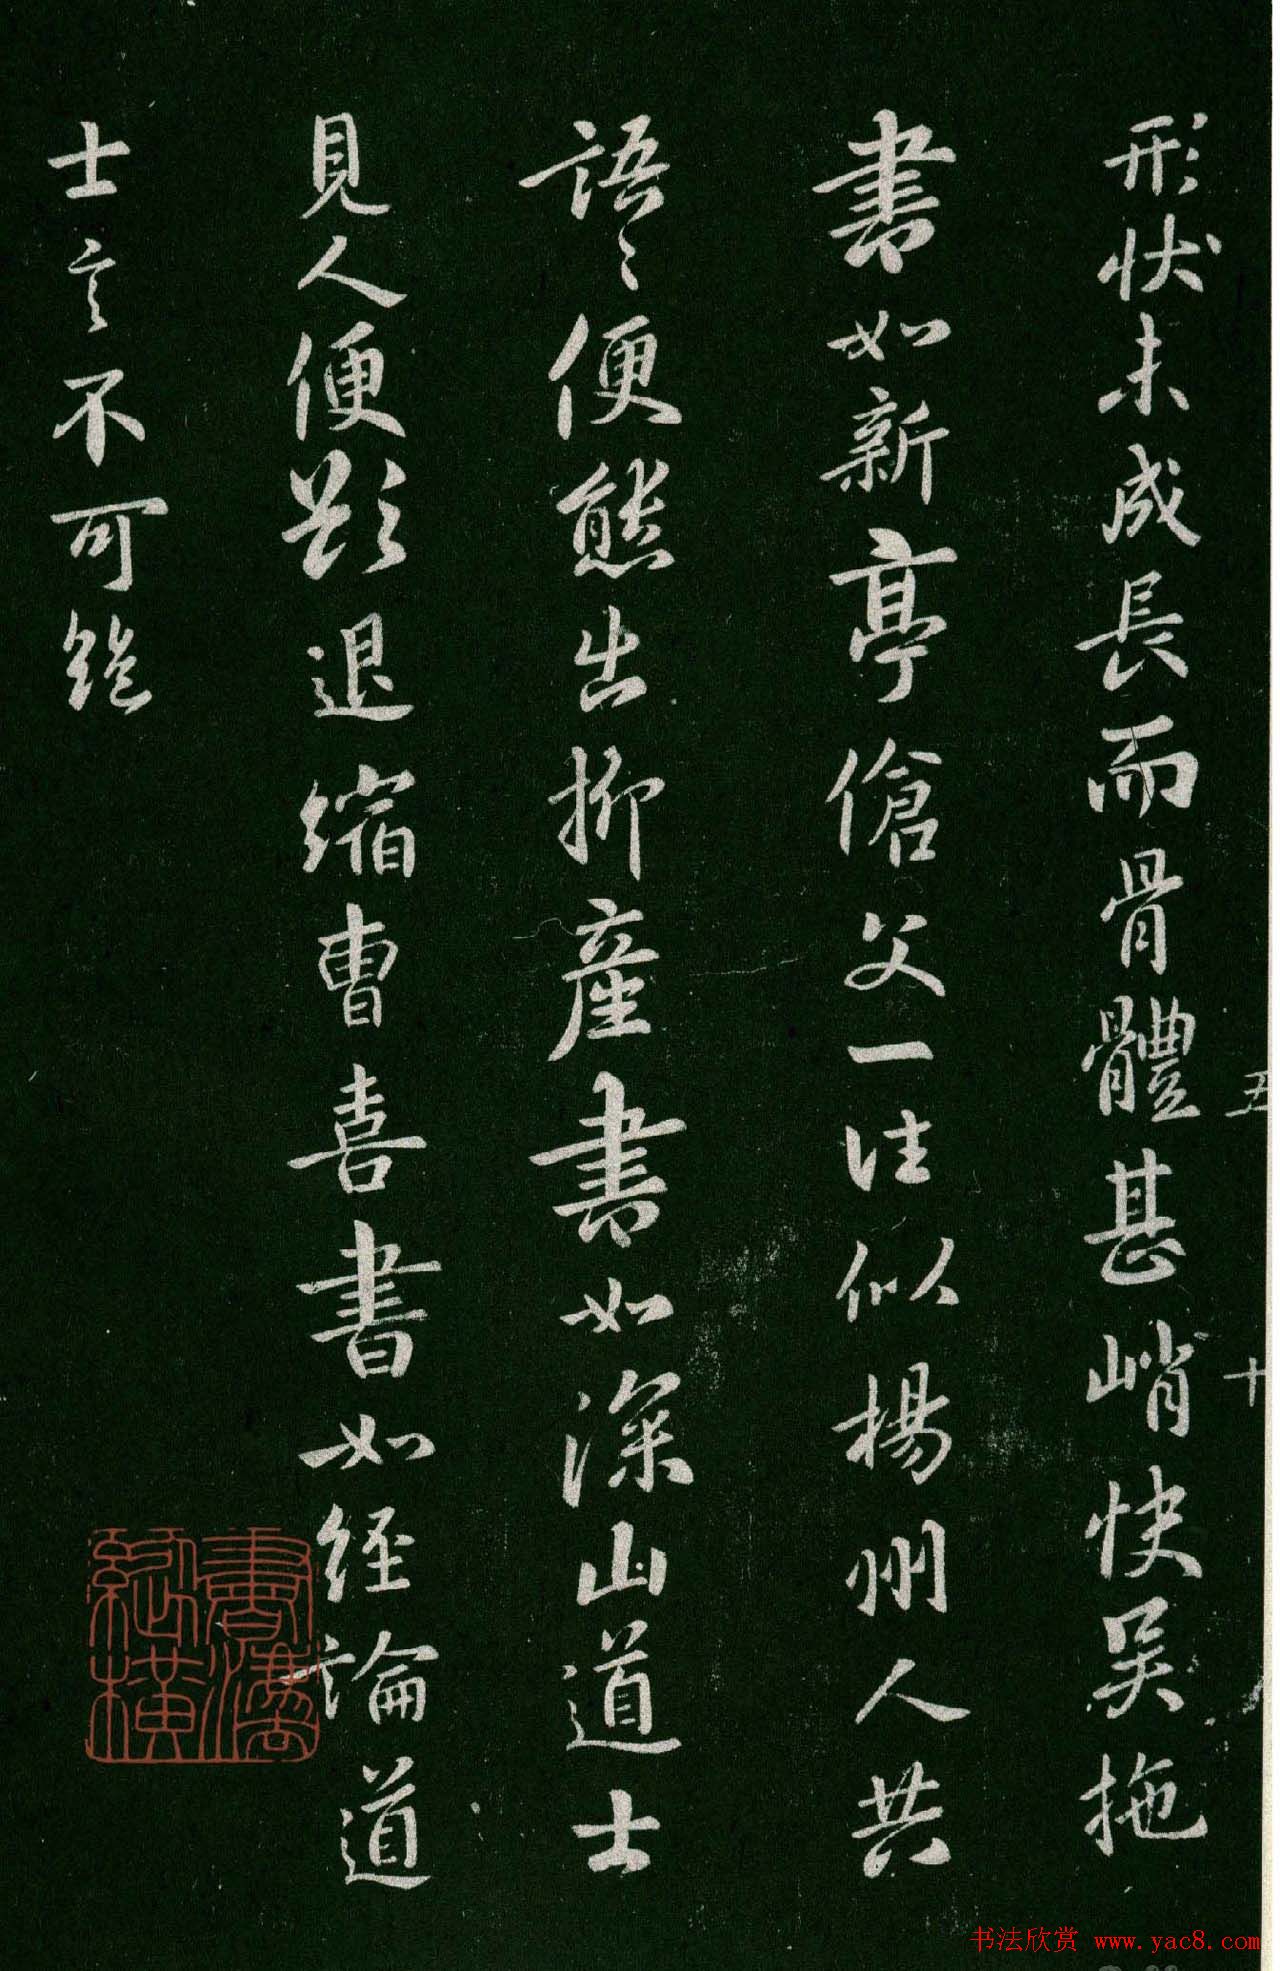 形状未成長而骨體甚峭快吴拖
書如新亭傖父一往似揚州人共
語々便態出柳產書如深山道士
見人便欲退縮曹喜書如経論道
士言不可絶
五
十
書法欣赏 www.yac8.com